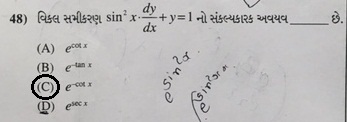 48) વિકલ સમીકરણ sin² x · dy/dx + y = 1 નો સંકલ્યકારક અવયવ ________ છે.
(A) e^cot x
(B) e^–tan x
(C) e^–cot x
(D) e^sec x
e^sin²x